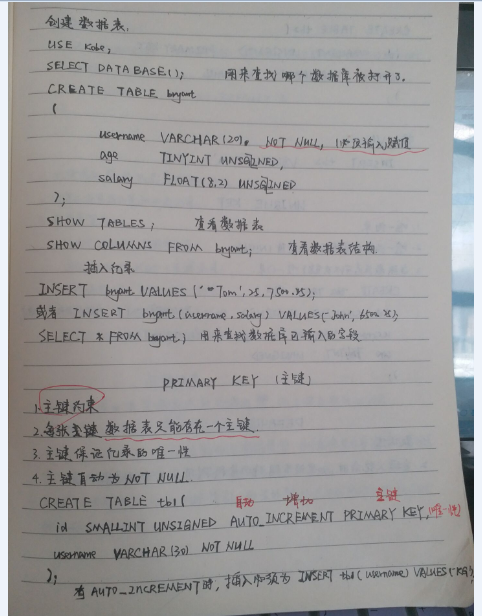 创建数据表.
USE Kobe;
SELECT DATABASE(); 用来查找哪个数据库被打开了.
CREATE TABLE bryant
(
username VARCHAR(20), NOT NULL, (必须输入赋值
age TINYINT UNSIGNED,
salary FLOAT(8,2) UNSIGNED
);
SHOW TABLES; 查看数据表
SHOW COLUMNS FROM bryant; 查看数据表结构.
插入纪录
INSERT bryant VALUES ('Tom', 25, 7500.25);
或者 INSERT bryant (username, salary) VALUES('John', 6500.25);
SELECT * FROM bryant; 用来查找数据库已输入的字段
PRIMARY KEY (主键)
1.主键约束
2.每张数据表只能存在一个主键.
3.主键保证纪录的唯一性
4.主键自动为 NOT NULL.
CREATE TABLE tb1( 自动 增加 主键
id SMALLINT UNSIGNED AUTO_INCREMENT PRIMARY KEY, (唯一性)
username VARCHAR(30) NOT NULL
);
有 AUTO_INCREMENT时, 插入必须为 INSERT tb1(username) VALUES(